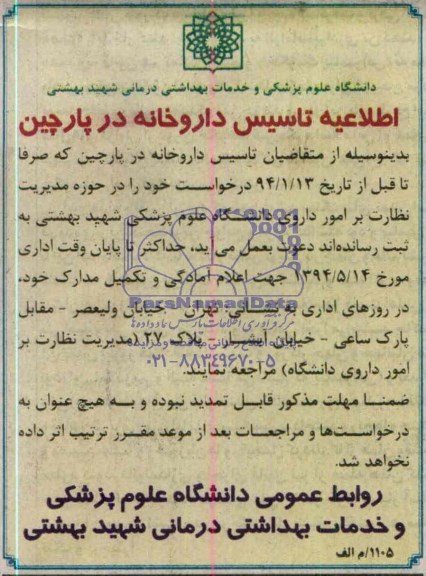 دانشگاه علوم پزشکی و خدمات بهداشتی درمانی شهید بهشتی
اطلاعیه تاسیس داروخانه در پارچین
بدینوسیله از متقاضیان تاسیس داروخانه در پارچین که صرفا
تا قبل از تاریخ ۹۴/۱/۱۳ درخواست خود را در حوزه مدیریت
نظارت بر امور داروی دانشگاه علوم پزشکی شهید بهشتی به
ثبت رسانده‌اند دعوت بعمل می آید، حداکثر تا پایان وقت اداری
مورخ ۱۳۹۴/۵/۱۴ جهت اعلام آمادگی و تکمیل مدارک خود،
ParsNamadData
در روزهای اداری به نشانی: تهران - خیابان ولیعصر - مقابل
پارک ساعی - خیابان - پلاک ۲۷ مدیریت نظارت بر
۰۲۱-۸۸۳۴۹۶۷۰-۵
امور داروی دانشگاه) مراجعه نمایند.
ضمنا مهلت مذکور قابل تمدید نبوده و به هیچ عنوان به
درخواست‌ها و مراجعات بعد از موعد مقرر ترتیب اثر داده
نخواهد شد.
روابط عمومی دانشگاه علوم پزشکی
و خدمات بهداشتی درمانی شهید بهشتی
۱۱۰۵/م الف